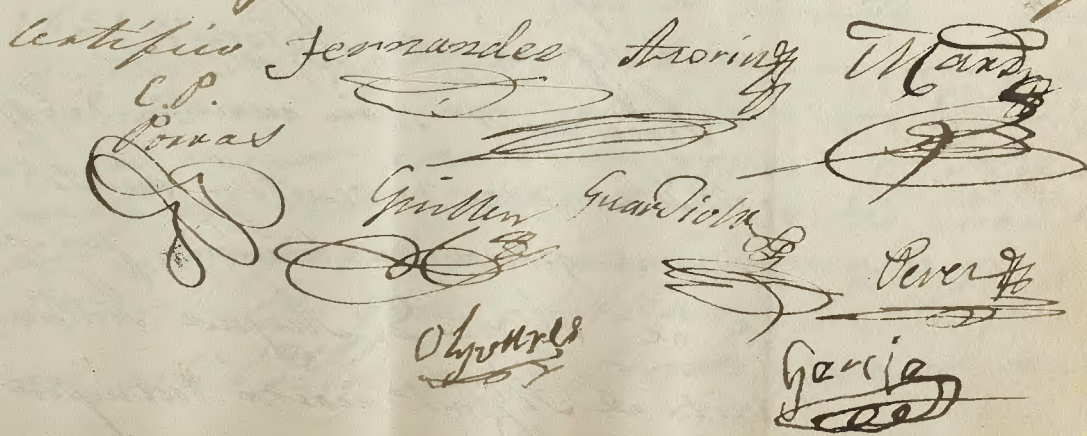 certifico Fernandez Azorin
C.P.
Porras
Guillen Guardiola
Perez
Olyvares
Garcia